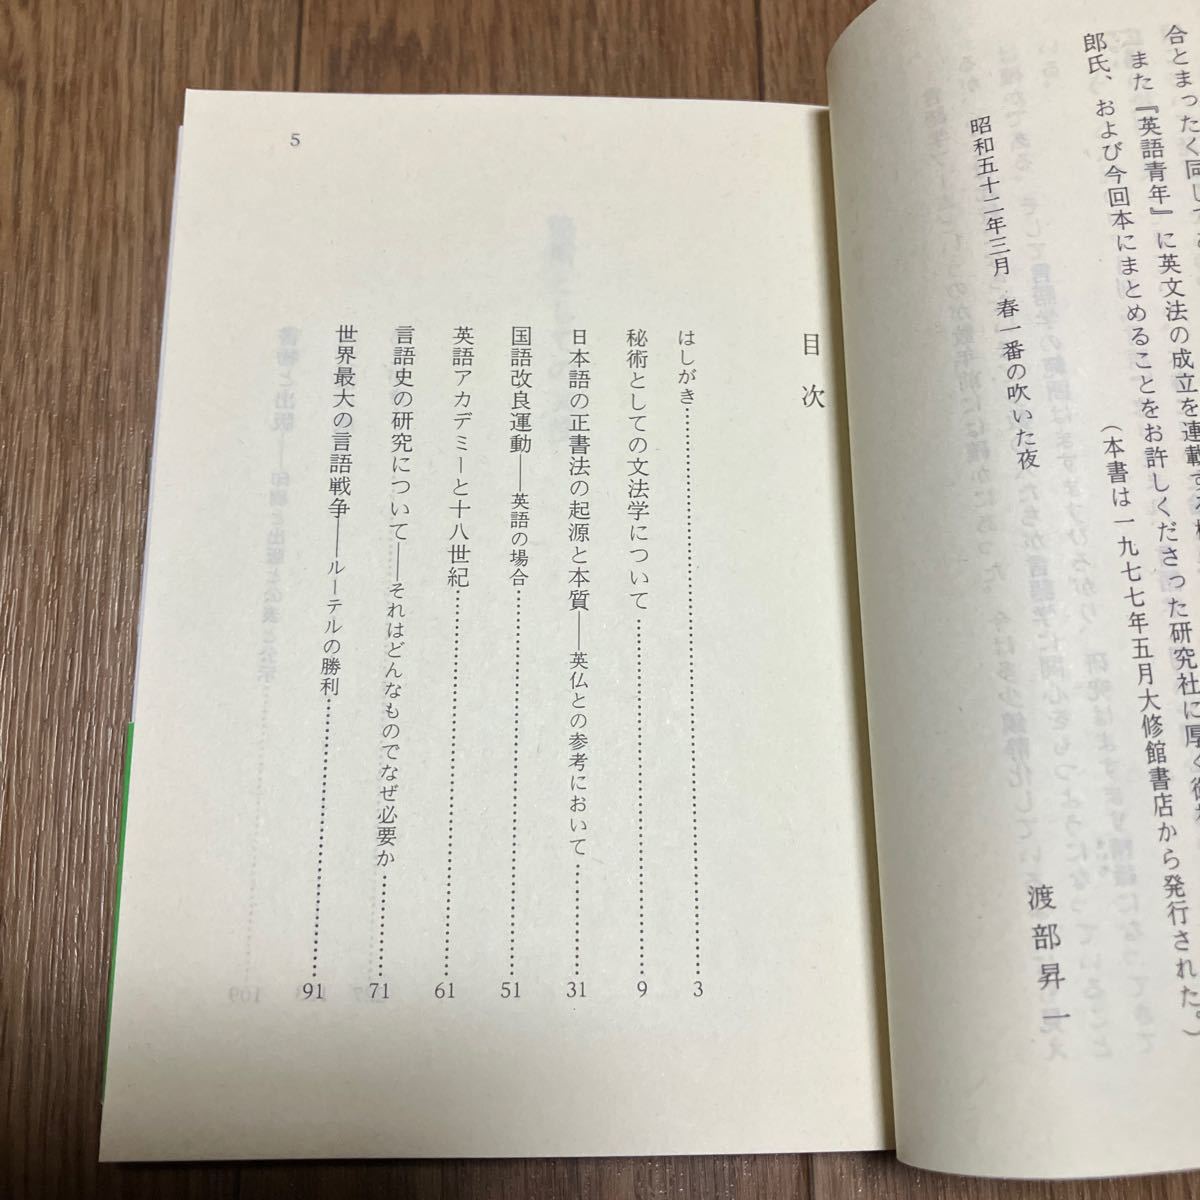 合とまったく同じ
また『英語青年』に英文法の成立を連載す
郎氏、および今回本にまとめることをお許しくださった研究社に厚く御
昭和五十二年三月 春一番の吹いた夜
渡部昇一
(本書は一九七七年五月大修館書店から発行された。)
目次
はしがき……3
秘術としての文法学について……9
日本語の正書法の起源と本質――英仏との参考において……31
国語改良運動――英語の場合……51
英語アカデミーと十八世紀……61
言語史の研究について――それはどんなものでなぜ必要か……71
世界最大の言語戦争――ルーテルの勝利……91
5